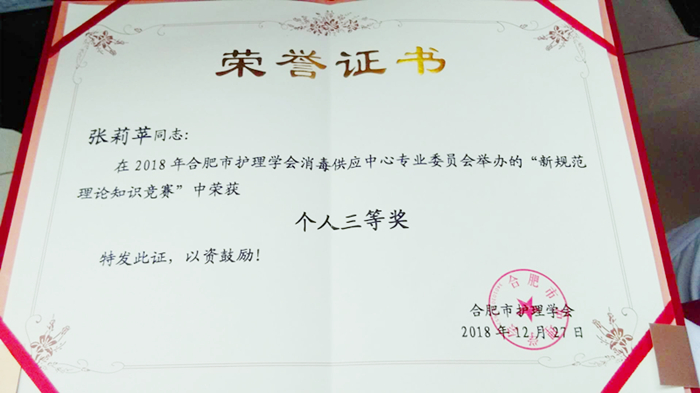 荣誉证书
张莉苹同志：
在2018年合肥市护理学会消毒供应中心专业委员会举办的“新规范
理论知识竞赛”中荣获
个人三等奖
特发此证，以资鼓励！
合肥市护理学会
2018年12月27日